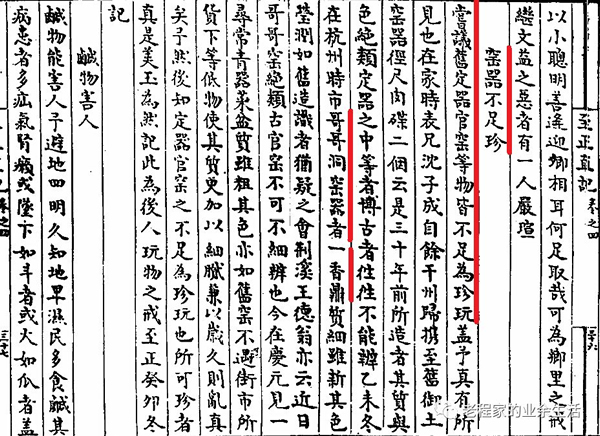 至正直記 卷之四
以小聰明善逢迎鄉相耳何足取哉可為鄉里之戒
繼文益之惡者有一人嚴瑄
窑器不足珍
嘗議舊定器官窑等物皆不足為珍玩蓋予真有所
見也在家時表兄沈子成自餘干州歸携至舊御土
窑器徑尺肉碟二個云是三十年前所造者其質與
色絕類定器之中等者博古者往往不能辨乙未冬
在杭州時市哥哥洞窑器者一香鼎質細雖新其色
瑩潤如舊造識者猶疑之會荆溪王德翁亦云近日
哥哥窑絕類古官窑不可不細辨也今在慶元見一
尋常青器菜盆質雖粗其色亦如舊窑不過街市所
貨下等低物使其質更加以細膩兼以歲久則亂真
矣予然後知定器官窑之不足為珍玩也所可珍者
真是美玉為然記此為後人玩物之戒至正癸卯冬
記
鹹物害人
鹹物能害人予避地四明久知地卑濕民多食鹹其
病患者多疝氣腎癩或墜下如斗者或大如瓜者蓋
三十七
老程家的业余生活